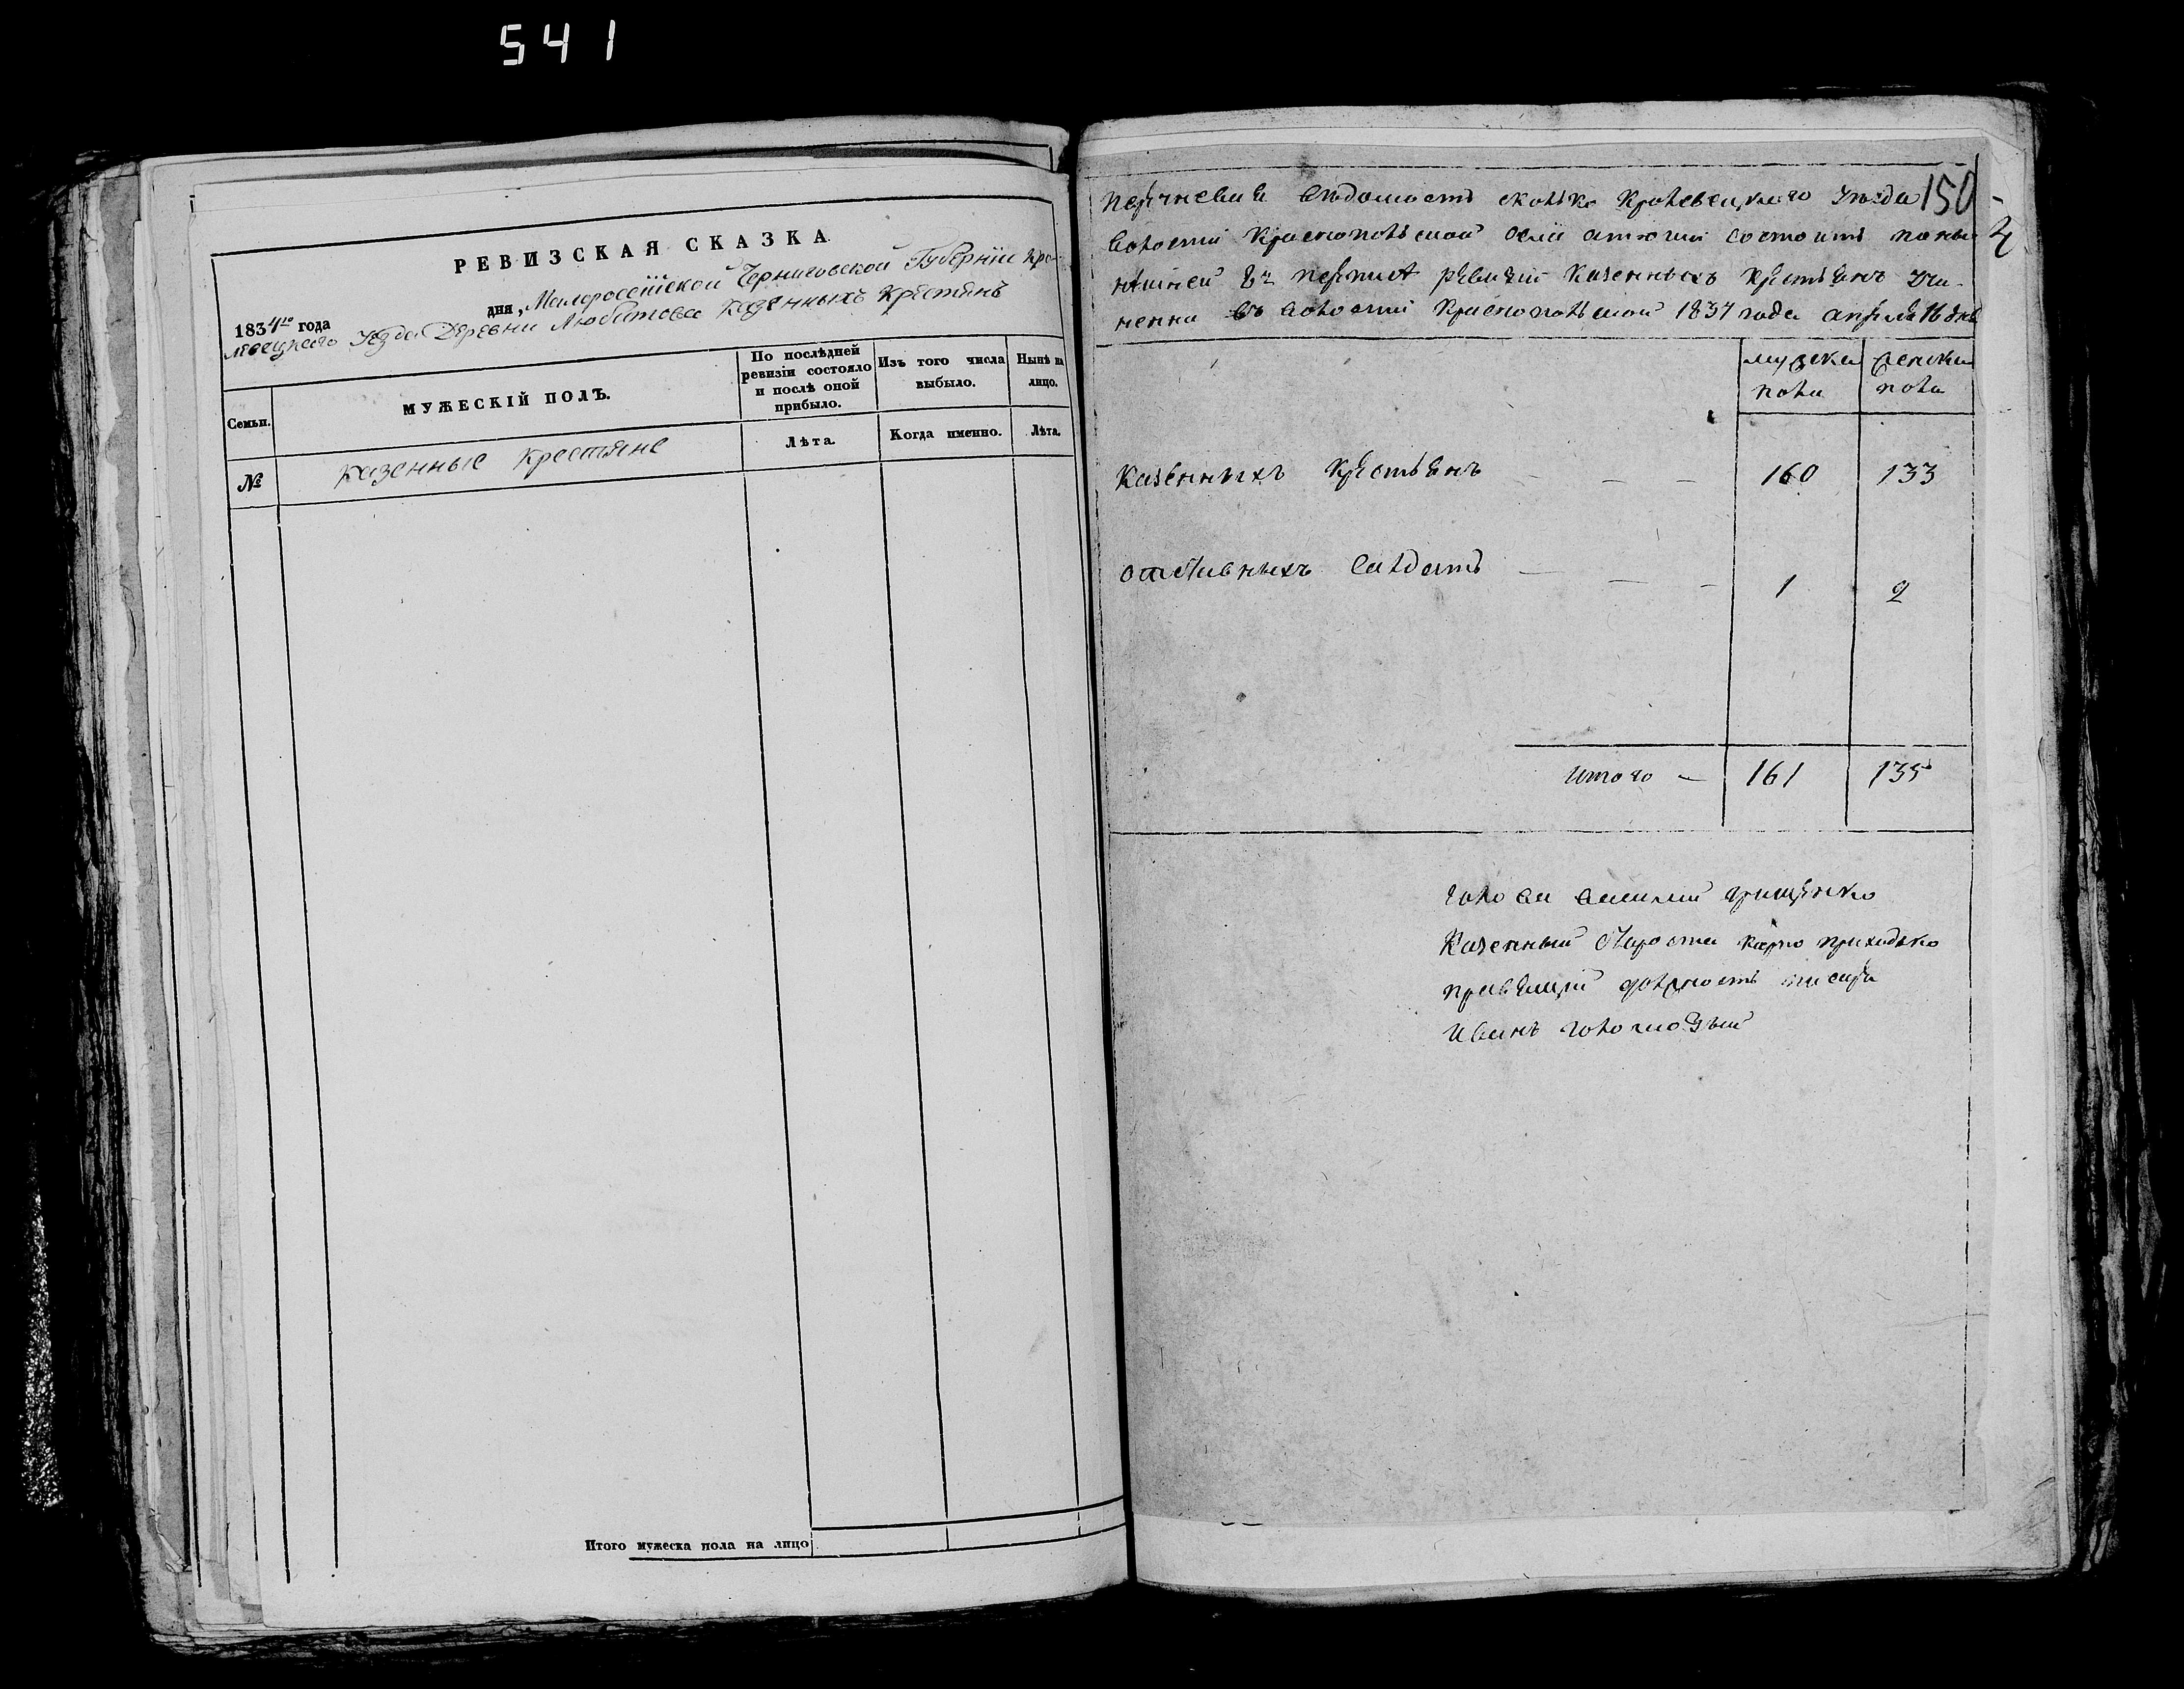 541
РЕВИЗСКАЯ СКАЗКА
1834го года дня, Малоросеійской Черниговской Губерніи Кро-
левецкаго Уезда Деревни Любитова Казенныхъ Крестянъ
Семьи.
МУЖЕСКІЙ ПОЛЪ.
По послѣдней ревизіи состояло и послѣ оной прибыло.
Изъ того числа выбыло.
Нынѣ на лицо.
№
Казенные Крестяне
Лѣта.
Когда именно.
Лѣта.
Итого мужеска пола на лицо
150
Перечневая ведомость сколко Кролевецкаго уезда
волости Краснополской состоитъ поны-
нешней 8й переписе ревизіи Казенныхъ Крестьянъ учи-
ненна въ волости Краснополской 1834 года апреля 16 дня
мужска пола
женска пола
Казенныхъ Крестьянъ — — — 160 133
отставныхъ салдатъ — — — 1 2
Итого — 161 135
Голова василий грищенко
Казенный Староста карпо приходко
правящій должность писаря
Иванъ